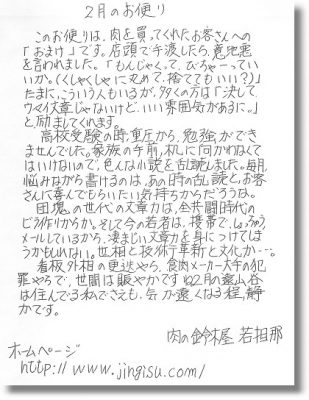 2月のお便り
このお便りは、肉を買ってくれたお客さんへの
「おまけ」です。店頭で手渡したら、意地悪
を言われました。「もんじゃくって、ひちゃーっていい
か。（くしゃくしゃに丸めて、捨ててもいい？）」
たまに、こういう人もいるが、多くの方は「決して
ウマイ文章じゃないけど、いい雰囲気があるに。」
と励ましてくれます。
高校受験の時、重圧から、勉強ができ
ませんでした。家族の手前、机に向かわなくて
はいけないので、色んな小説を乱読しました。毎月、
悩みながら書けるのは、あの時の乱読と、お客
さんに喜んでもらいたい気持ちからだろうな。
団塊の世代の文章力は、全共闘時代の
ビラ作りからか。そして今の若者は、携帯で、しょっちゅう
メールしているから、凄まじい文章力を身につけてしま
うかもしれない。世相と技術革新と文化か…。
看板外相の更迭やら、食肉メーカー大手の犯
罪やらで、世間は賑やかですね。2月の遠山谷
は住んでる私でさえも、気が遠くなる程、静
かです。
肉の鈴木屋 若旦那
ホームページ
http://www.jingisu.com/